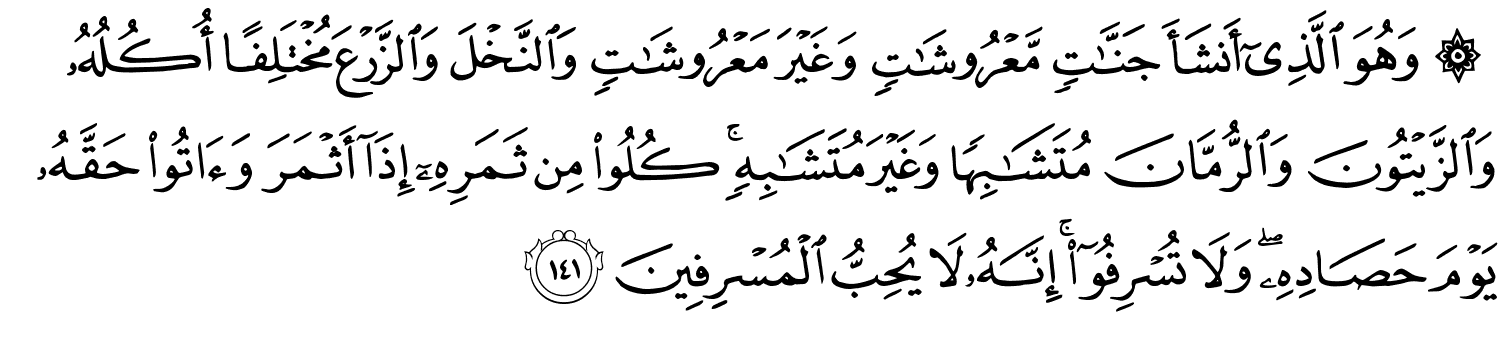 ۞ وَهُوَ ٱلَّذِىٓ أَنشَأَ جَنَّـٰتٍ مَّعْرُوشَـٰتٍ وَغَيْرَ مَعْرُوشَـٰتٍ وَٱلنَّخْلَ وَٱلزَّرْعَ مُخْتَلِفًا أُكُلُهُۥ
وَٱلزَّيْتُونَ وَٱلرُّمَّانَ مُتَشَـٰبِهًا وَغَيْرَ مُتَشَـٰبِهٍ ۚ كُلُوا۟ مِن ثَمَرِهِۦٓ إِذَآ أَثْمَرَ وَءَاتُوا۟ حَقَّهُۥ
يَوْمَ حَصَادِهِۦ ۖ وَلَا تُسْرِفُوٓا۟ ۚ إِنَّهُۥ لَا يُحِبُّ ٱلْمُسْرِفِينَ ١٤١